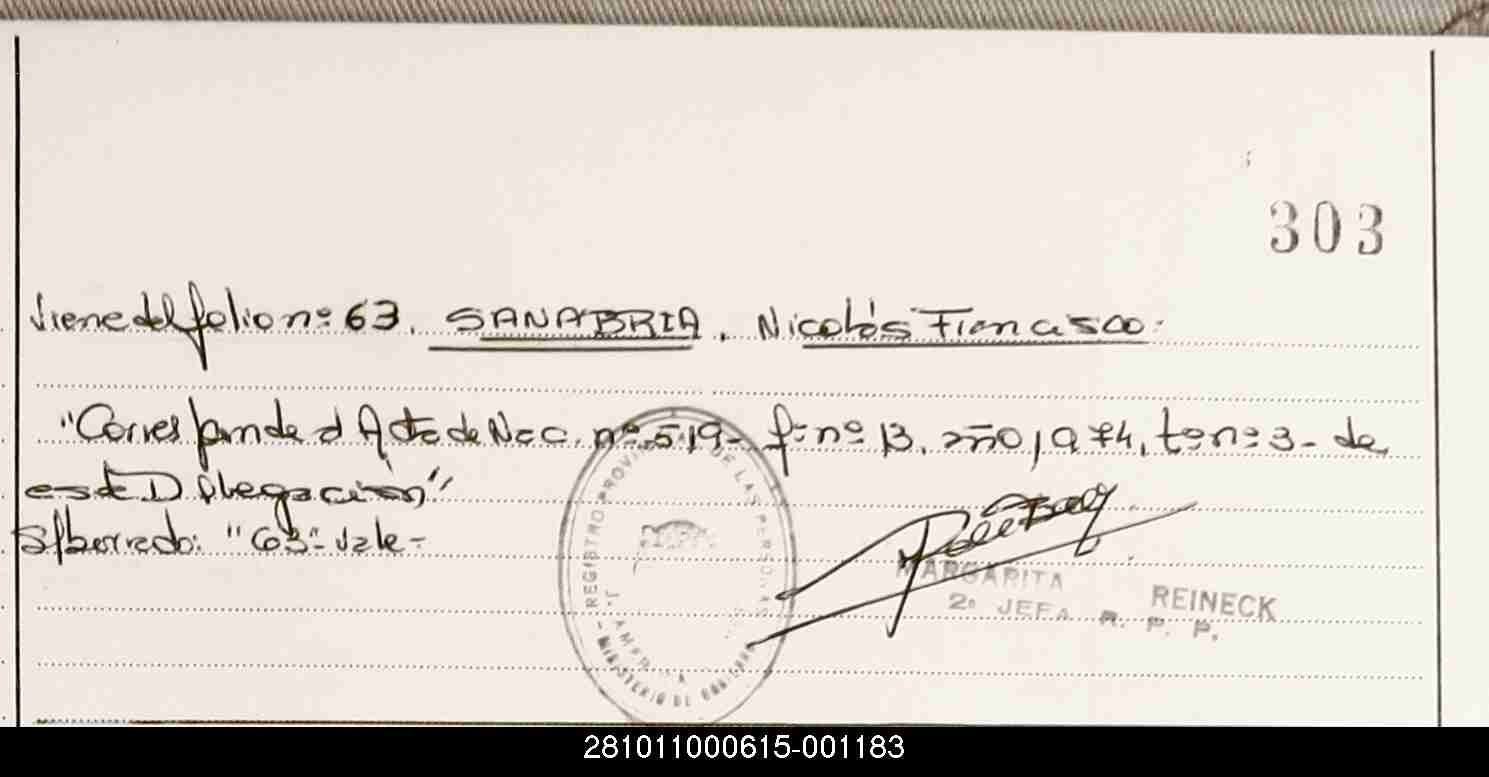 303
Viene del folio nº 63. SANABRIA. Nicolás Francisco.
"Corresponde al Acta de Nac. nº 519 - fº nº 13. año 1974, tº nº 3 - de
esta Delegación"
S/borrado: "63" - Vale -
REGISTRO PROVINCIAL DE LAS PERSONAS
MINISTERIO DE
MARGARITA REINECK
2º JEFA R. P. P.
281011000615-001183